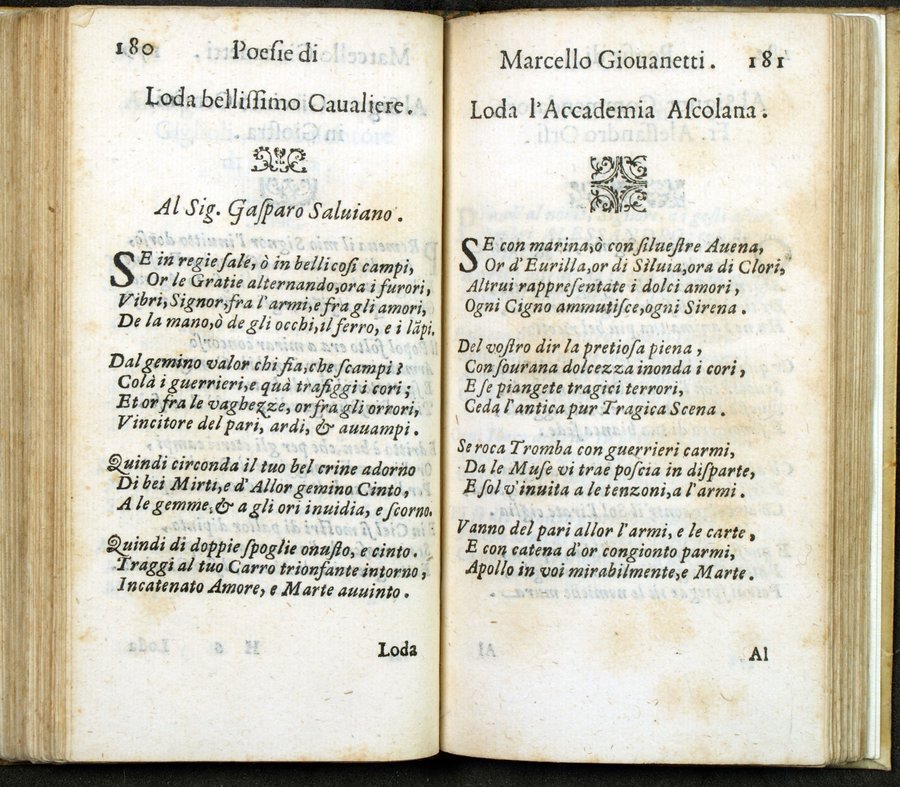 180 Poeſie di
Loda belliſſimo Caualiere.
Al Sig. Gaſparo Saluiano.
SE in regie ſale, ò in bellicoſi campi,
Or le Gratie alternando, ora i furori,
Vibri, Signor, fra l'armi, e fra gli amori,
De la mano, ò de gli occhi, il ferro, e i lãpi.
Dal gemino valor chi fia, che ſcampi?
Colà i guerrieri, e quà trafiggi i cori;
Et or fra le vaghezze, or fra gli orrori,
Vincitore del pari, ardi, & auuampi.
Quindi circonda il tuo bel crine adorno
Di bei Mirti, e d'Allor gemino Cinto,
A le gemme, & a gli ori inuidia, e ſcorno.
Quindi di doppie ſpoglie onuſto, e cinto.
Traggi al tuo Carro trionfante intorno,
Incatenato Amore, e Marte auuinto.
Loda
Marcello Giouanetti. 181
Loda l'Accademia Aſcolana.
SE con marina, ò con ſilueſtre Auena,
Or d'Eurilla, or di Siluia, ora di Clori,
Altrui rappreſentate i dolci amori,
Ogni Cigno ammutiſce, ogni Sirena.
Del voſtro dir la pretioſa piena,
Con ſourana dolcezza inonda i cori,
E ſe piangete tragici terrori,
Ceda l'antica pur Tragica Scena.
Se roca Tromba con guerrieri carmi,
Da le Muſe vi trae poſcia in diſparte,
E ſol v'inuita a le tenzoni, a l'armi.
Vanno del pari allor l'armi, e le carte,
E con catena d'or congionto parmi,
Apollo in voi mirabilmente, e Marte.
Al